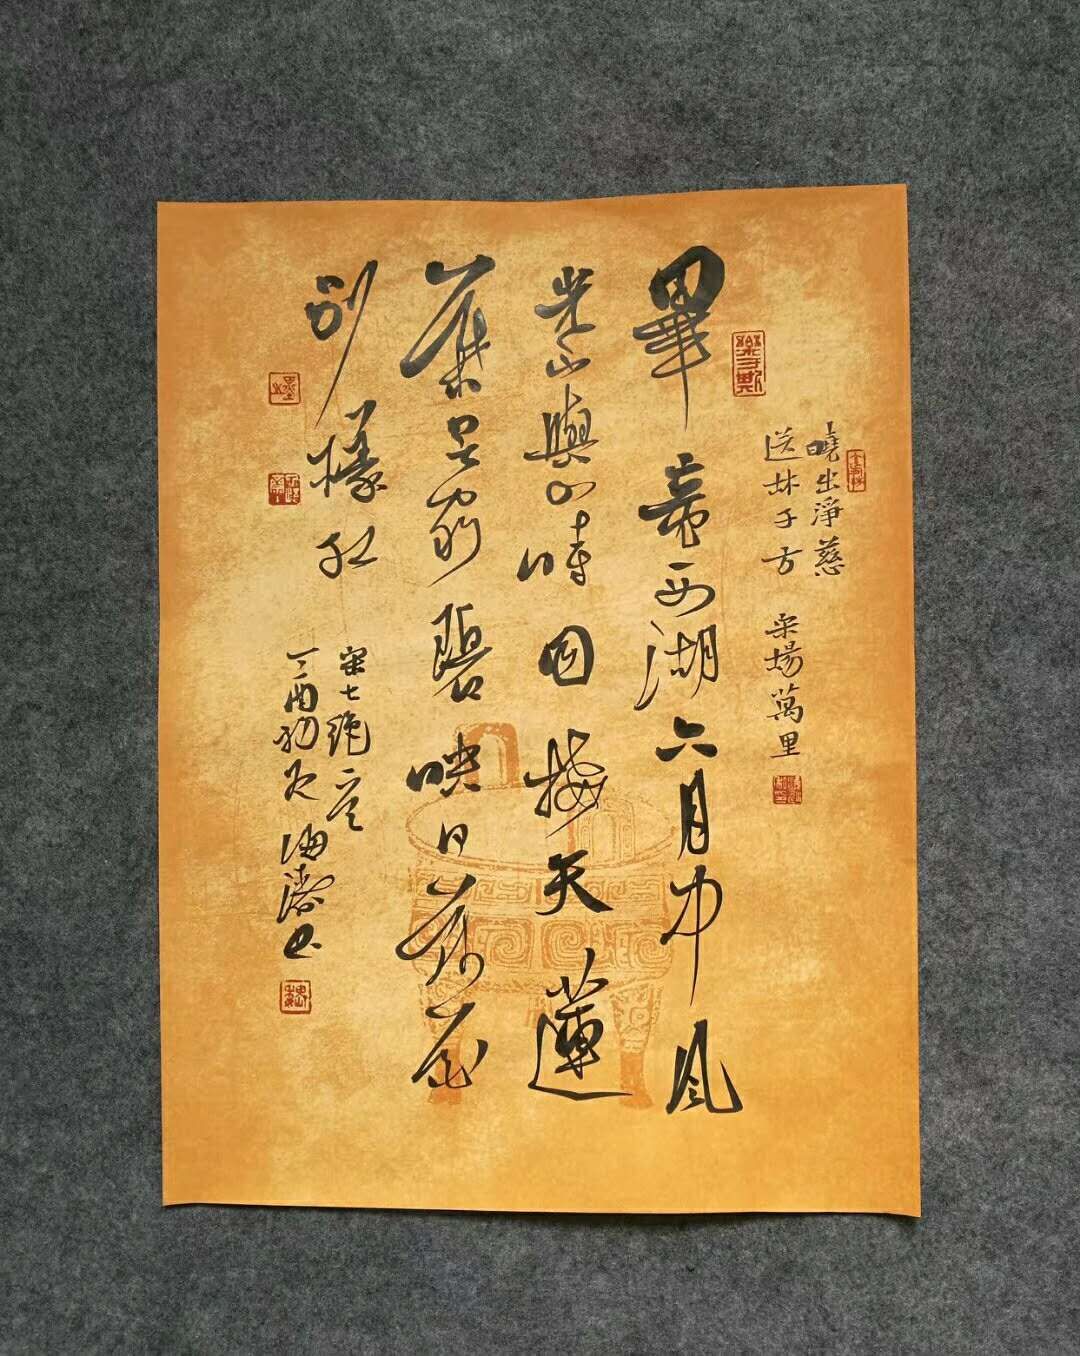 曉出淨慈
送林子方 宋楊萬里
畢竟西湖六月中風
光不與四時同接天蓮
葉無窮碧映日荷花
別樣紅
宋七絕
丁酉初夏海濤书